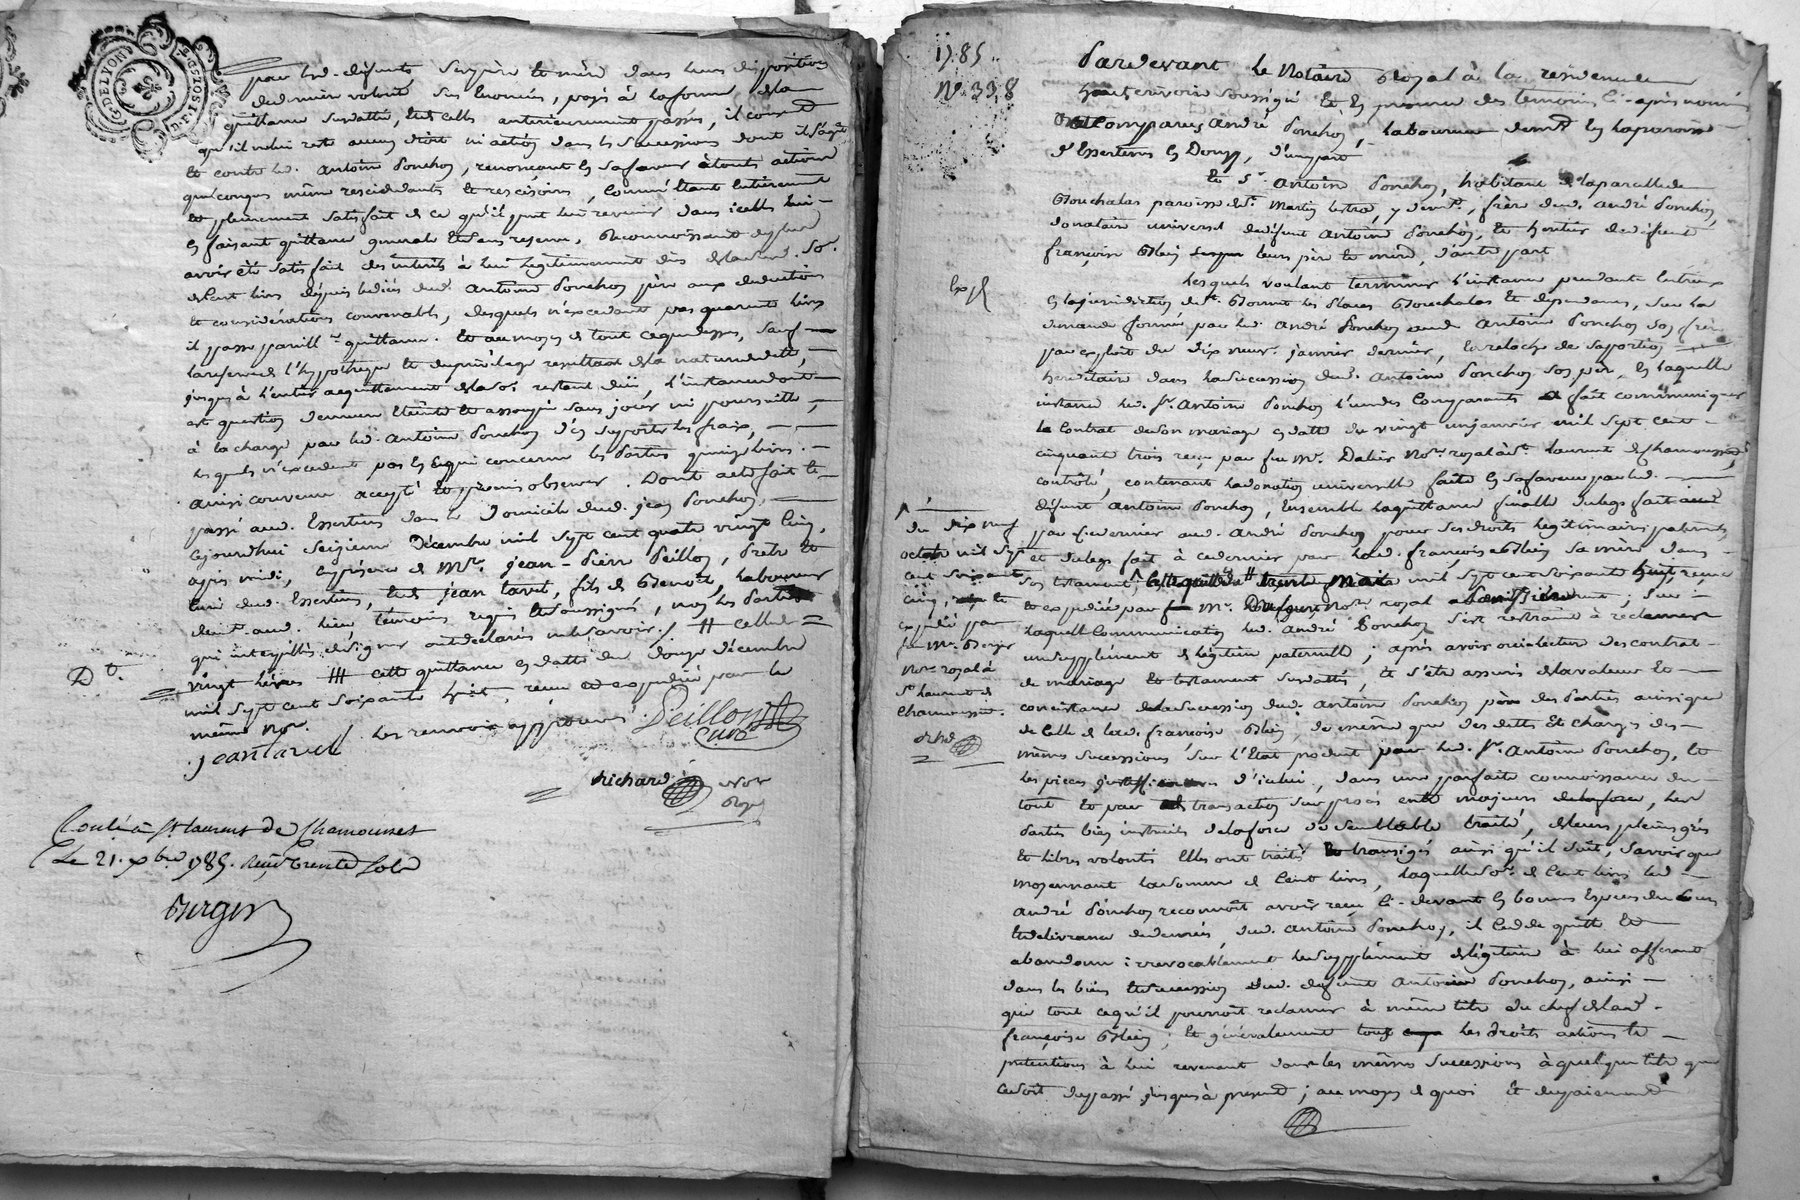 G. DE LYON
pour led. défunts ses père et mère dans leurs dispositions
de dernière volonté sus énoncées, payés à la forme de la
quittance susdattée, et de celle antérieurement passée, il consent
qu'il ne lui reste aucun droit ni action dans les successions dont il s'agit
et contre led. Antoine Ponchon, renonceant en sa faveur à toute action
quelconque même rescindante et rescisoire, comme étant entièrement
et pleinement satisfait de ce qu'il peut lui revenir dans icelles lui
en faisant quittance generale et sans reserve, Reconnoissant de plus
avoir été satisfait des interets à lui legitimement dus de lad. so.
de cent livres depuis le décès dud. Antoine Ponchon père aux deductions
et considérations convenables, desquels n'excedant pas quarente livres
il passe pareille quittance. Et au moyen de tout ce que dessus, sauf
la reserve de l'hypotheque et du privilege resultant de la nature de dette,
jusqu'à l'entier acquittement de la so. restant düe, l'instance dont
est question demeure éteinte et assoupie sans jouir ni poursuitte,
à la charge par led. Antoine Ponchon d'en supporter les fraix,
lesquels n'excedent pas en ce qui concerne les parties quinze livres.
ainsi convenu accepté et promis observer. Dont acte fait et
passé aud. Essertines dans le domicile dud. jean Ponchon,
cejourdhui seizieme Décembre mil sept cent quatre vingt cinq,
après midi, en présence de Mre. jean-Pierre Peillon, Prêtre et
curé dud. Essertines, et de jean tavel, fils de Benoît, laboureur
demt. aud. lieu temoins requis et soussignés, non les parties
qui interpellées de signer ont declaré ne le savoir. / # celle de =
vingt livres ### cette quittance en datte du douze décembre
mil sept cent soixante huit, reçue et expediée par le
même nore.
les renvois approuvés
Peillon
Curé
jean tavel
richard
nore
Royal
Conlé à St laurent de Chamousset
Le 21. xbre 1785. Reçu trente sols
Berger
1785.
N°. 338
Pardevant Le Notaire Royal à la residence de
soussigné Et En presence des temoins ci-après nommés
Comparus André Ponchon, laboureur demt. en la paroisse
d'Essertines en Donzy, d'une part
Et Sr. Antoine Ponchon, habitant de la parcelle de
Rouchalas paroisse de St. Martin lestra, y demt., frère dud. André Ponchon,
donataire universel de défunt Antoine Ponchon, Et heritier de défunte
françoise Blein leurs père et mère, d'autre part
Lesquels voulant terminer l'instance pendante entr'eux
en la jurisdiction de les places Rouchalas et dependances, sur la
demande formée par led. André Ponchon aud. Antoine Ponchon son frère
par exploit du dix neuf janvier dernier, en relache de sa portion
hereditaire dans la succession dud. Antoine Ponchon son père, en laquelle
instance led. Sr. Antoine Ponchon l'un des comparants a fait communiquer
le contrat de son mariage en datte du vingt un janvier mil sept cent
cinquante trois reçu par feu Me. Dalier Nore. royal à St. laurent de Chamousset,
contrôlé, contenant la donation universelle faite en sa faveur par led.
défunt Antoine Ponchon, Ensemble la quittance finalle du legs fait
par ce dernier aud. André Ponchon pour ses droits légitimaires paternels,
et du legs fait à ce dernier par lad. françoise Blein sa mère dans
son testament ^, cette quittance mil sept cent soixante huit, reçue
et expediée par Me. Nore royal ; sur
laquelle communication led. André Ponchon s'est restraint à reclamer
un supplément de légitime paternelle ; après avoir oui lecture des contrat
de mariage et testament susdattés, et s'être assuré de la valeur et
consistance de la succession dud. Antoine Ponchon père des parties ainsi que
de celle de lad. françoise Blein, de même que des dettes et charges des
mêmes successions sur l'Etat produit par led. Sr. Antoine Ponchon, et
les pieces justificatives d'icelui, dans une parfaite connoissance du
tout et par transaction sur procès entre majeurs de la force, les
parties bien instruites de la force de semblable traité, de leurs pleins grés
et libres volontés elles ont traité et transigé ainsi qu'il suit, savoir que
moyennant la somme de cent livres, laquelle so. de cent livres led.
André Ponchon reconnoît avoir reçu ci-devant en bonnes especes du cours
et delivrance de denrées, dud. Antoine Ponchon, il cede quitte et
abandonne irrevocablement le supplément de légitime à lui afferant
dans les biens et succession dud. défunt Antoine Ponchon, ainsi
que tout ce qu'il pourroit reclamer à même titre du chef de lad.
françoise Blein ; et généralement tous les droits actions et
pretentions à lui revenant dans les mêmes successions à quelque titre que
ce soit du passé jusqu'à present ; au moyen de quoi Et du paiement
Exp.
^
du dix neuf
octobre mil sept
cent soixante
cinq, et
expédié par
feu Me. Berger
Nore royal à
St. laurent de
Chamousset.